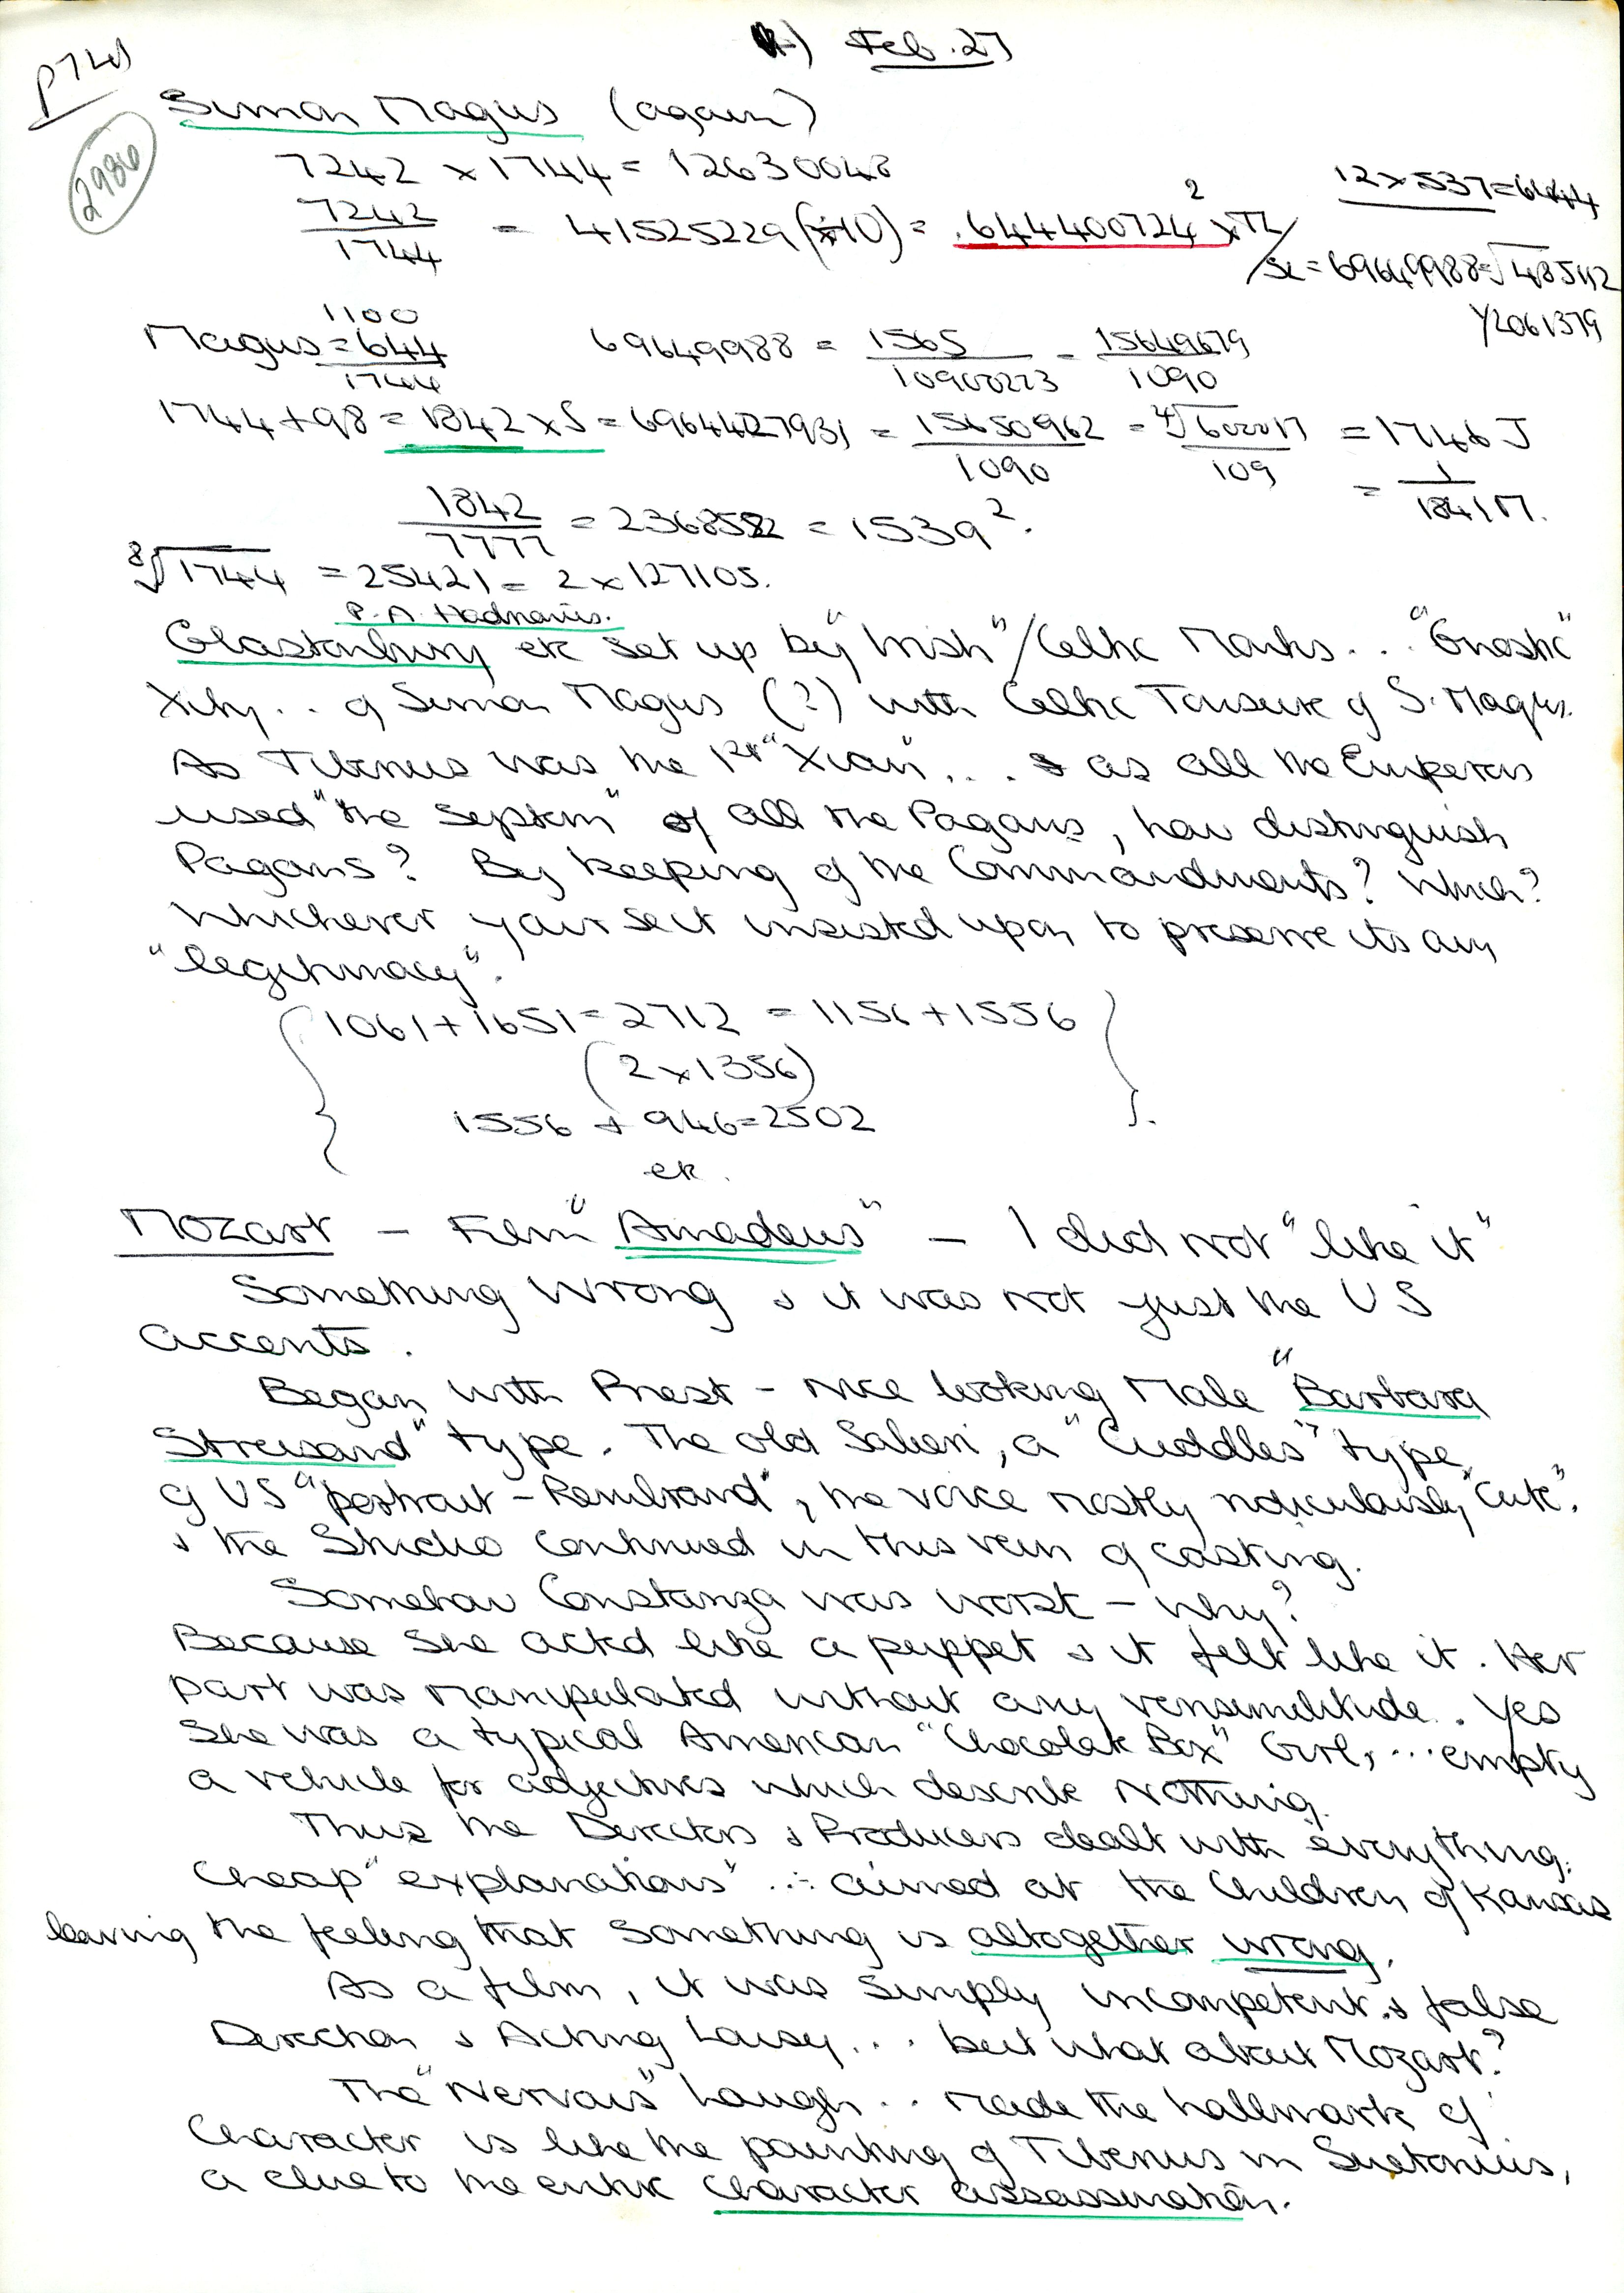 Feb. 27
2986
Simon Magus (again)
7242 x 1744 = 12630048
12 x 537 = 6444
7242/1744 = 41525229 (÷10) = .644400724² x TL
/SL = 69649988 = √485112
Y2061379
1100
Magus = 644
1744
69649988 = 1565/10900223 = 15649679/1090
1744 + 98 = 1842 x S = 6964427931 = 15650962/1090 = ⁴√600017/109 = 1746 J
= 1/1841Π.
1842/7777 = 2368522 = 1539².
⁸√1744 = 25421 = 2 x 127105.
P.A. Hadrianus.
Glastonbury etc set up by "Irish"/Celtic Monks... "Gnostic"
Xity.. of Simon Magus (?) with Celtic Tonsure of S. Magus.
As Tiberius was the 1st "Xian"... as all the Emperors
used "the system" of all the Pagans, how distinguish
Pagans? By keeping of the Commandments? Which?
Whichever your sect insisted upon to preserve its own
"legitimacy".
1061 + 1651 = 2712 = 1156 + 1556
(2 x 1356)
1556 + 946 = 2502
etc.
Mozart - Film "Amadeus" - I did not "like it"
Something wrong & it was not just the US
accents.
Began with Priest - nice looking Male "Barbara
Streisand" type. The old Salieri, a "Cuddles" type
of US "portrait - Rembrand", the voice mostly ridiculously "Cute".
& the Studio continued in this vein of casting.
Somehow Constanza was worst - why?
Because she acted like a puppet & it felt like it. Her
part was manipulated without any verisimilitude. Yes
she was a typical American "Chocolate Box" Girl, ... empty
a vehicle for adjectives which describe nothing.
Thus the Directors & Producers dealt with everything:
Cheap "explanations" ... aimed at the Children of Kansas
leaving the feeling that something is altogether wrong.
As a film, it was simply incompetent & false
Direction & Acting Lousy... but what about Mozart?
The "Nervous" Laugh... made the hallmark of
Character is like the painting of Tiberius in Suetonius,
a clue to the entire character assassination.